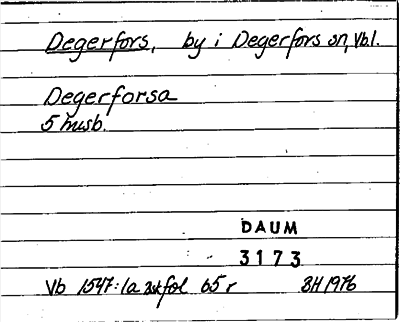 Degerfors, by i Degerfors sn, Vb.l.
Degerforsa
5 husb.
DAUM
3173
Vb 1547:1a fol 65 r BH 1976